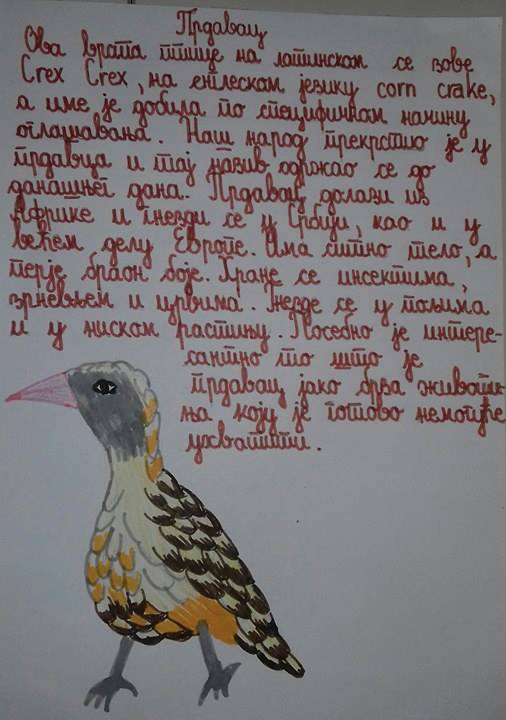 Прдавац
Ова врста птице на латинском се зове
Crex Crex, на енглеском језику corn crake,
а име је добила по специфичном начину
оглашавања. Наш народ прекрстио је у
прдавца и тај назив одржао се до
данашњег дана. Прдавац долази из
Африке и гнезди се у Србији, као и у
већем делу Европе. Има ситно тело, а
перје браон боје. Хране се инсектима,
зрневљем и црвима. Гнезде се у пољима
и у ниском растињу. Посебно је интере-
сантно то што је
прдавац јако брза животи-
ња коју је готово немогуће
ухватити.